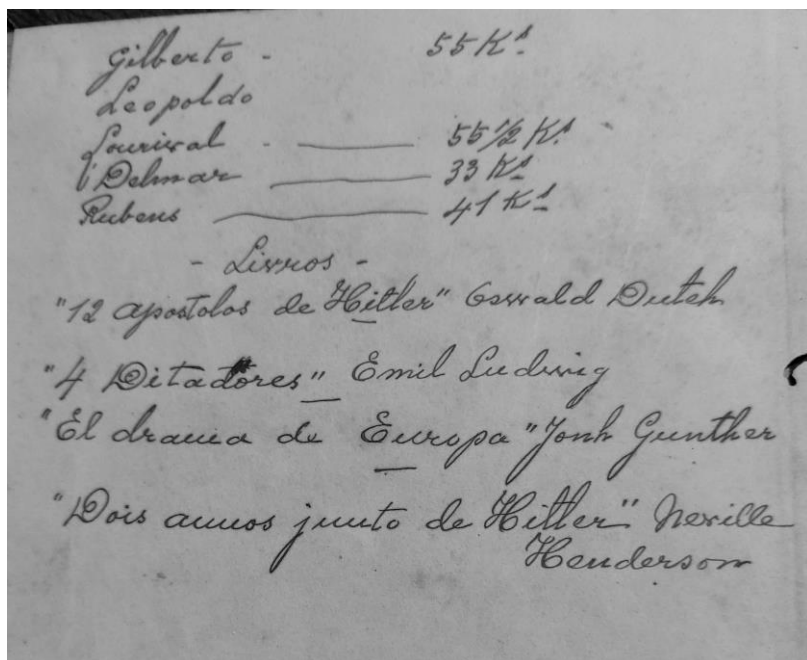 Gilberto - 55 Ks.
Leopoldo
Lourival - — 55 1/2 Ks.
Delmar — 33 Ks
Rubens — 41 Ks
- Livros -
"12 apostolos de Hitler" Oswald Dutch
"4 Ditadores" Emil Ludwig
"El drama de Europa" Jonh Gunther
"Dois annos junto de Hitler" Neville
Henderson